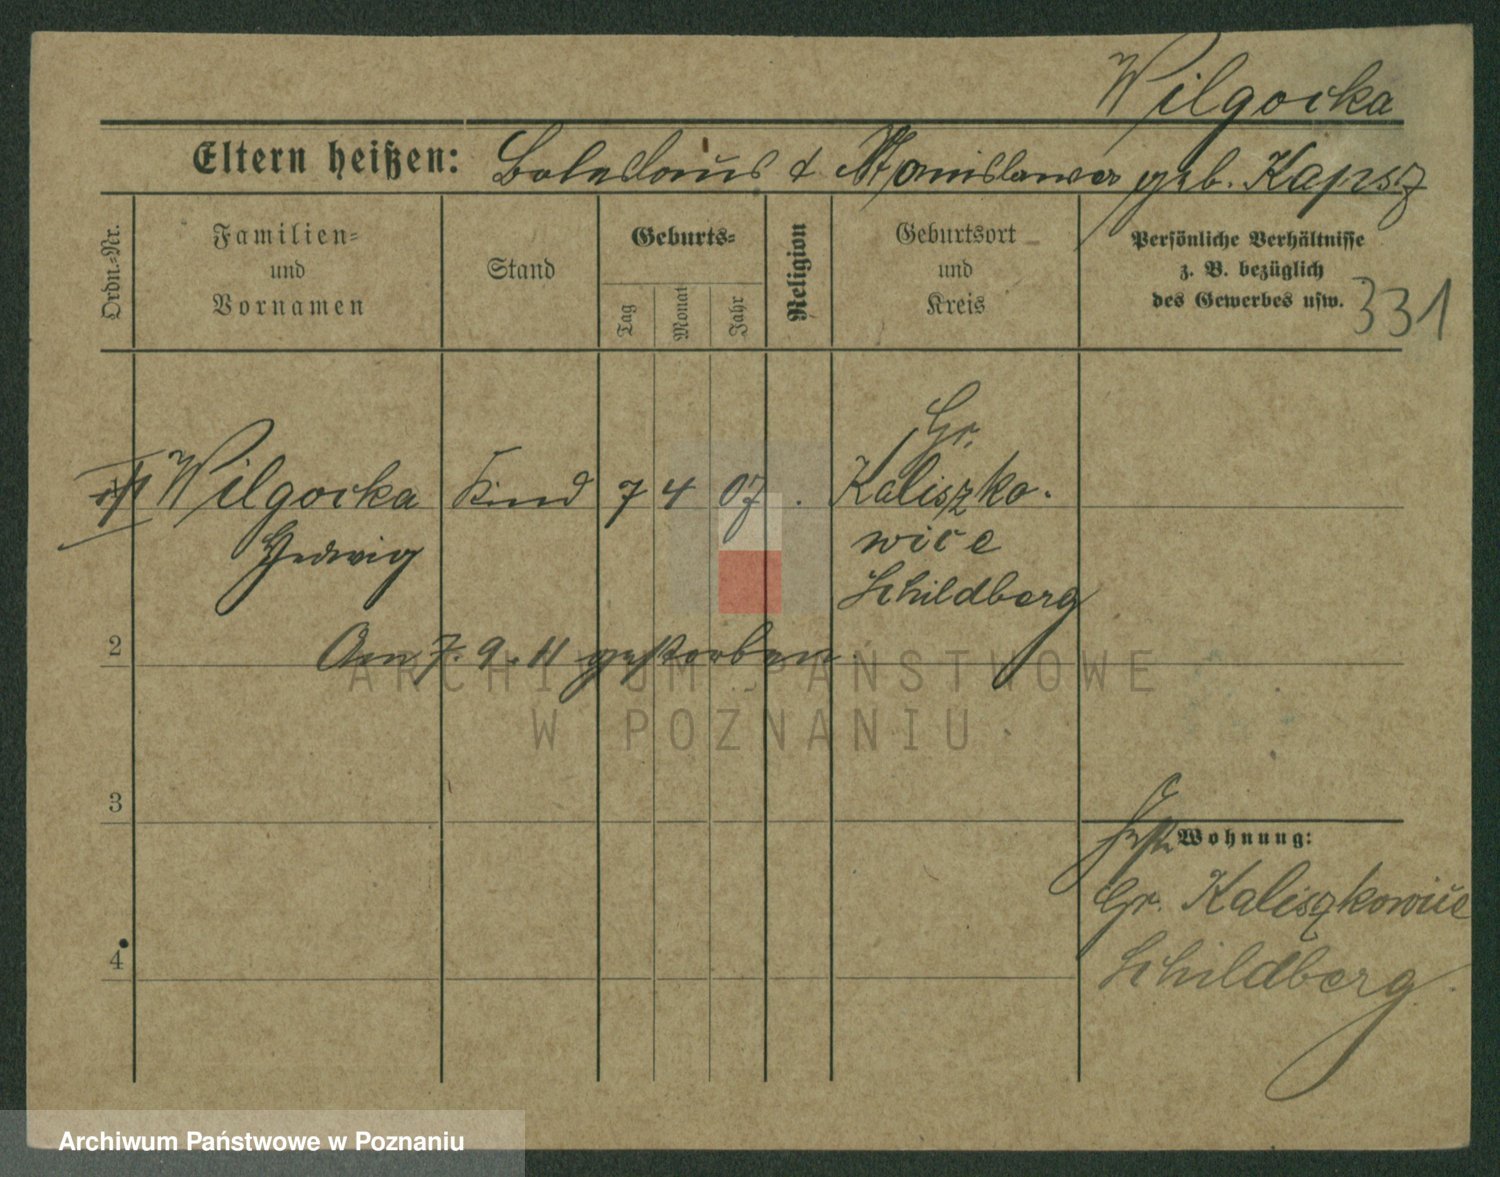 Wilgocka
Eltern heißen: Boleslaus & Stanislawa geb. Kapsz
Ordn.-Nr.
Familien-
und
Vornamen
Stand
Geburts-
Tag
Monat
Jahr
Religion
Geburtsort
und
Kreis
Persönliche Verhältnisse
z. B. bezüglich
des Gewerbes usw.
331
Wilgocka Kind 7 4 07
Hedwig
Gr.
Kaliszko-
wice
Schildberg
2
Am 7. 9. 11 gestorben.
3
4
Wohnung:
Gr. Kaliszkowice
Schildberg
ARCHIWUM PAŃSTWOWE
W POZNANIU
Archiwum Państwowe w Poznaniu